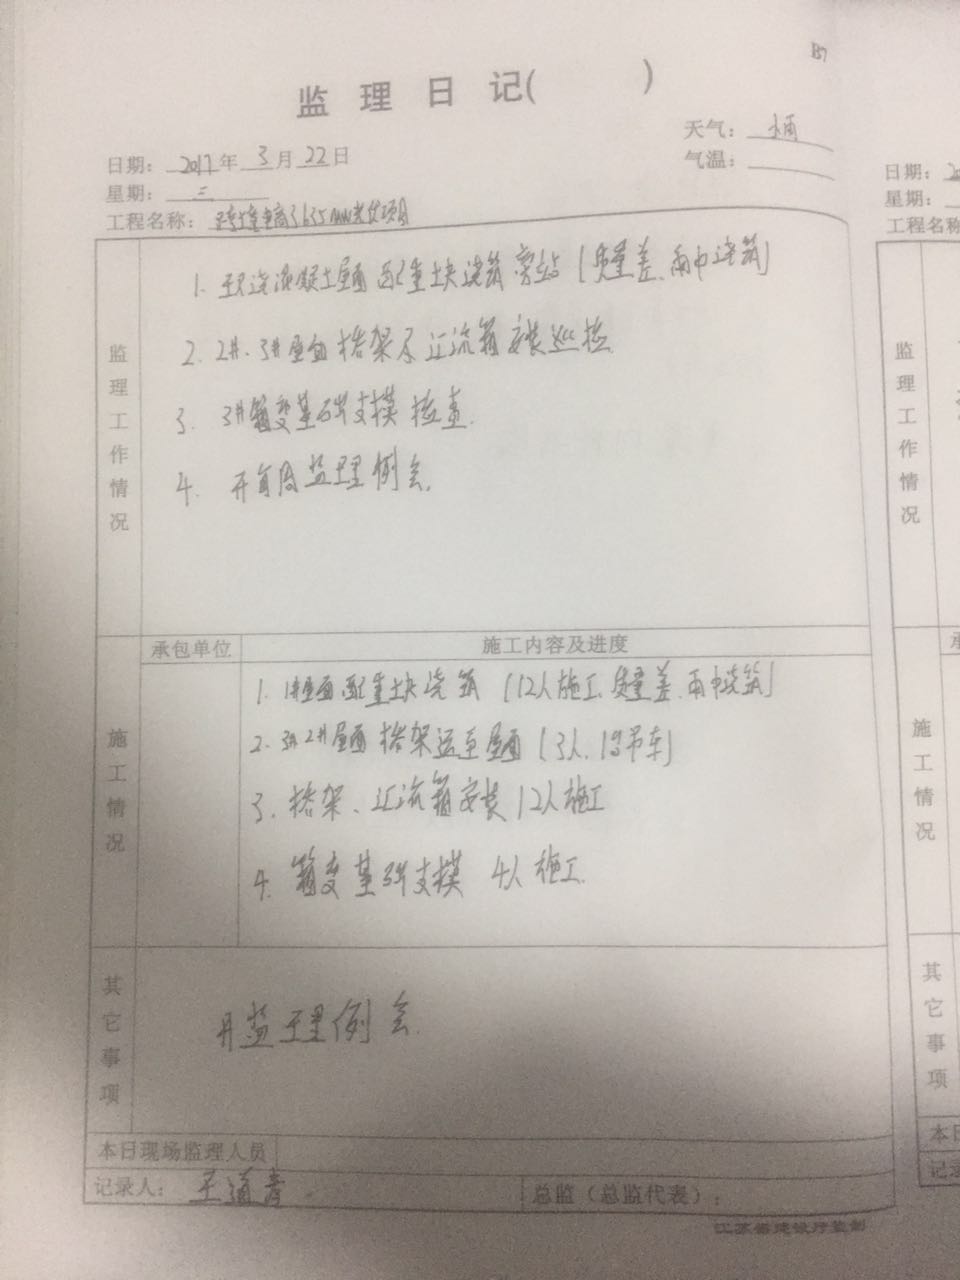 B7
监 理 日 记( )
天气： 小雨
日期： 2017 年 3 月 22 日
气温：
星期： 三
工程名称： 3.635MW光伏项目
监理工作情况
1. 现浇混凝土屋面配重块浇筑旁站（质量差、雨中浇筑）
2. 2#、3#屋面桥架及汇流箱安装巡检
3. 3#箱变基础支模检查.
4. 开每周监理例会.
承包单位 施工内容及进度
施工情况
1. 1#屋面配重块浇筑（12人施工、质量差、雨中浇筑）
2. 3#2#屋面桥架运至屋面（3人、1台吊车）
3. 桥架、汇流箱安装12人施工
4. 箱变基础支模 4人施工.
其它事项
开监理例会.
本日现场监理人员
记录人： 王道青
总监（总监代表）：
江苏省建设厅监制
日期： 20
星期：
工程名称
监理工作情况
承
施工情况
其它事项
本日
记录